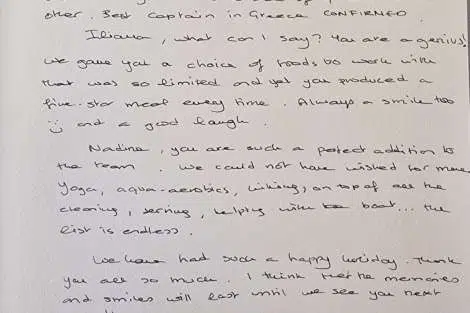 other. Best captain in Greece CONFIRMED.
Iliana, what can I say? You are a genius!
We gave you a choice of foods to work with
that was so limited and yet you produced a
five-star meal every time. Always a smile too
and a good laugh.
Nadine, you are such a perfect addition to
the team. We could not have wished for more
Yoga, aqua-aerobics, on top of all the
cleaning, serving, helping with the boat... the
list is endless.
We have had such a happy holiday. Thank
you all so much. I think that the memories
and smiles will last until we see you next